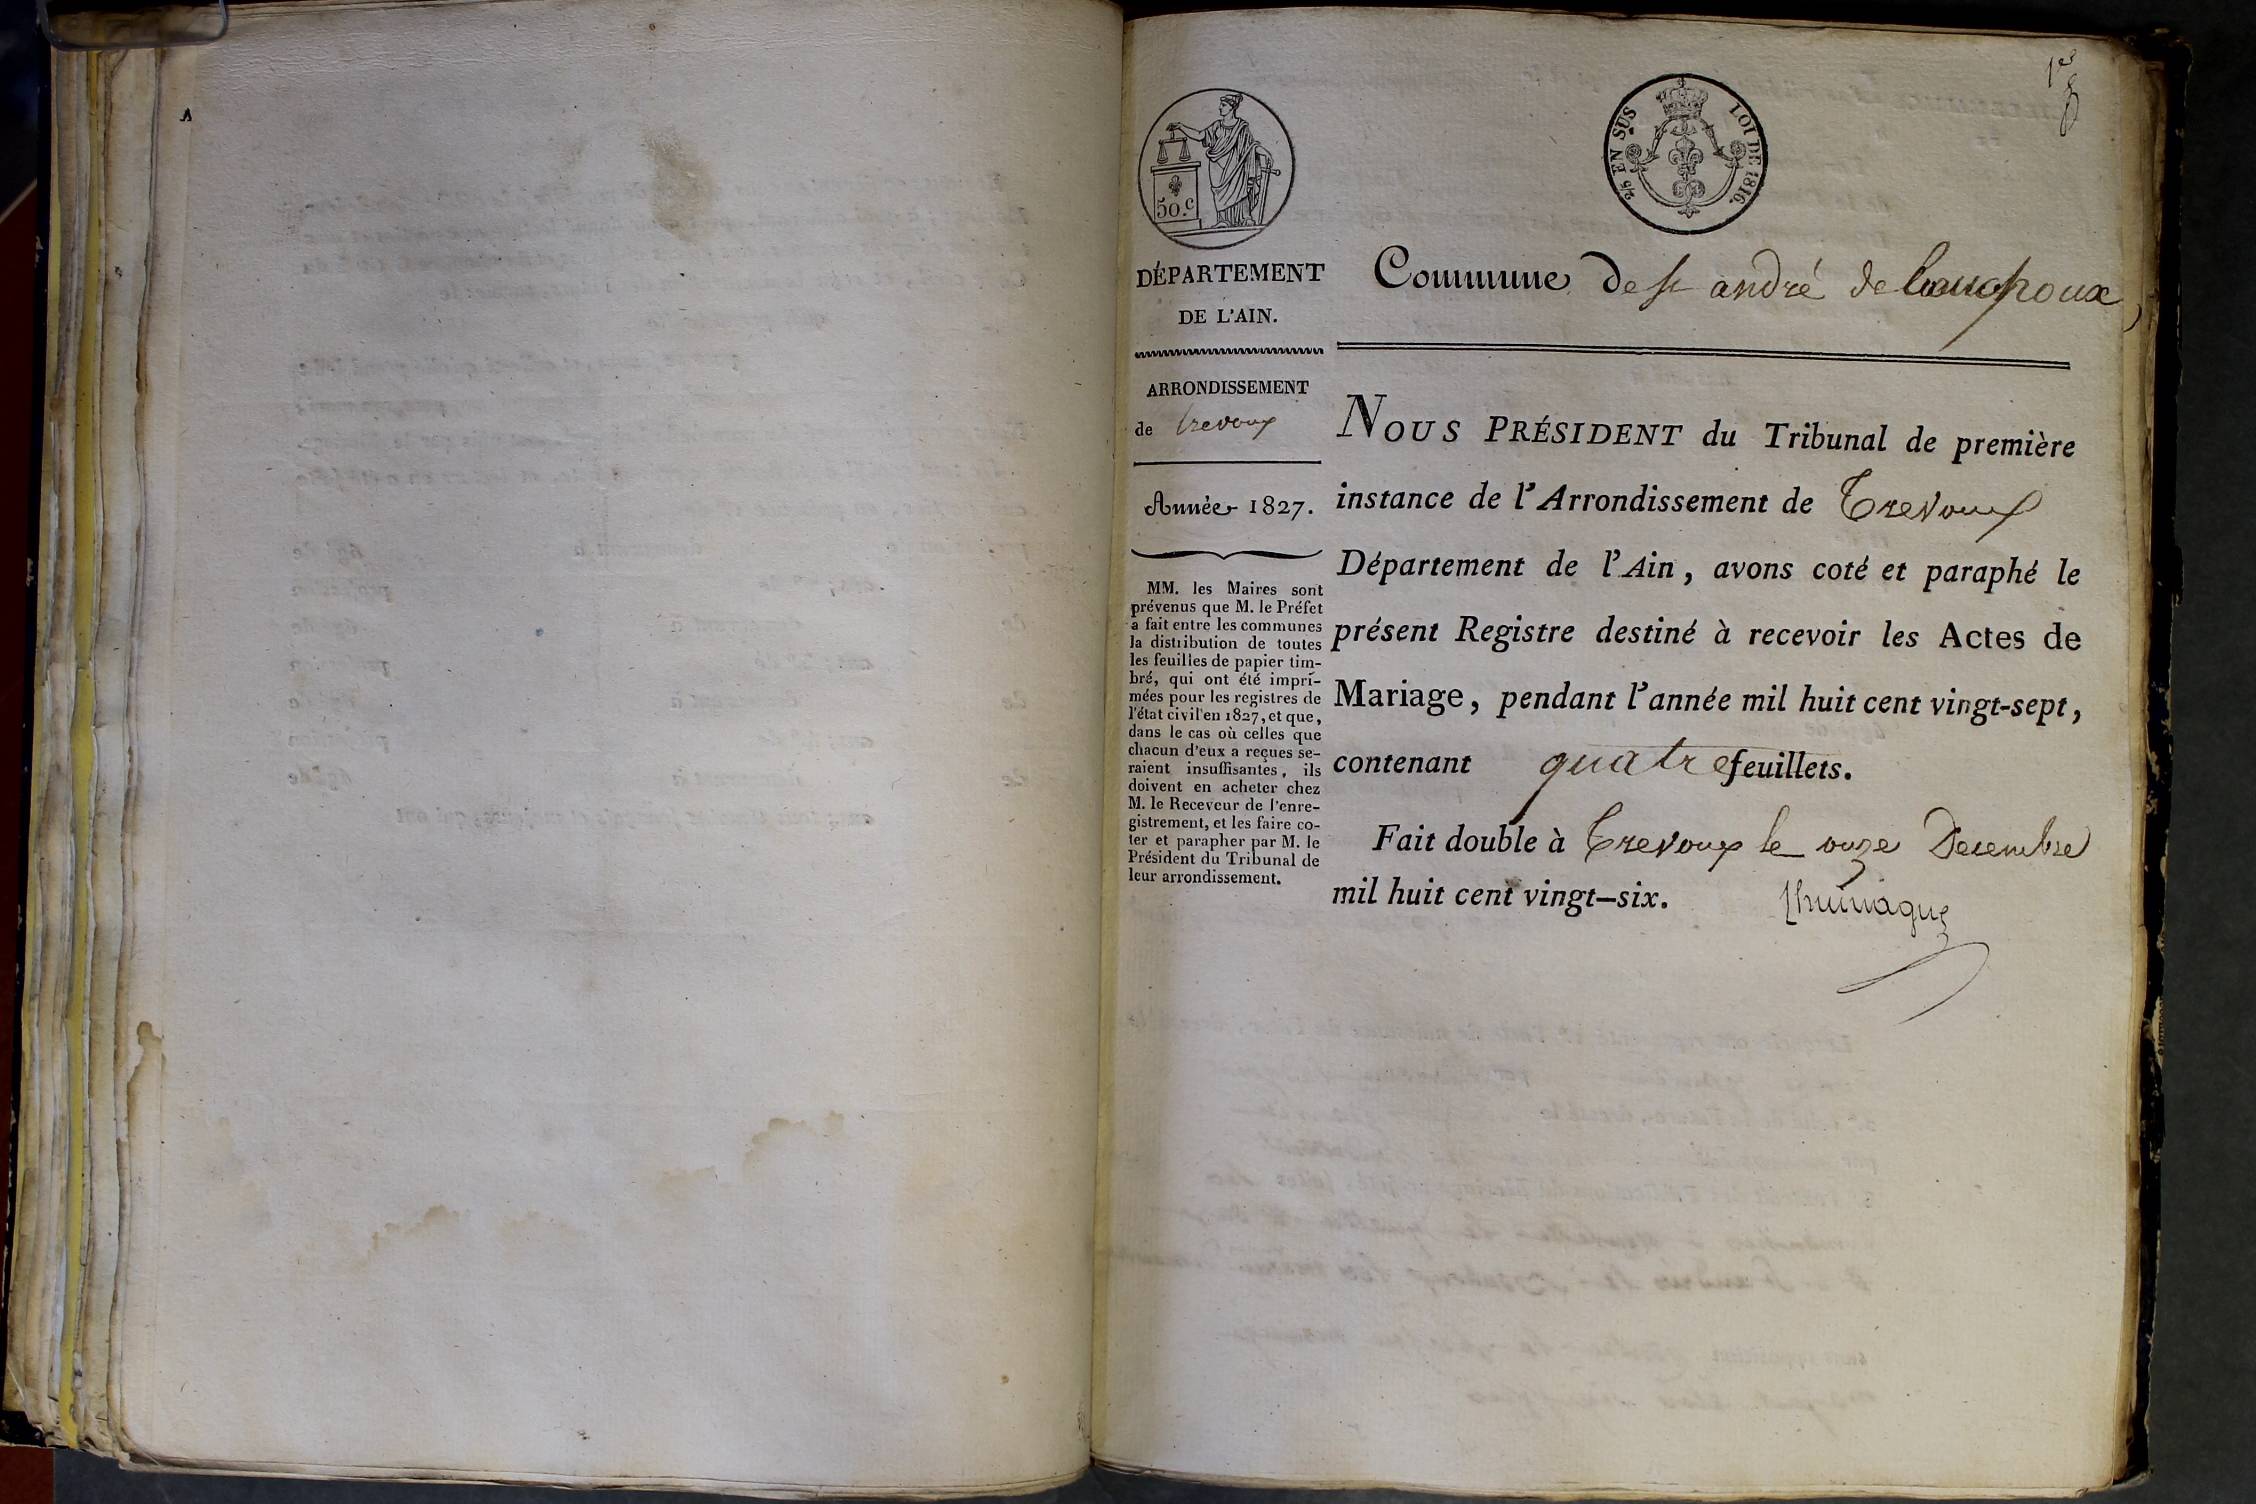 1er
50.c
2/5 EN SUS
LOI DE 1816.
DÉPARTEMENT
DE L'AIN.
Commune de st andré de
ARRONDISSEMENT
de trevoux
Année 1827.
MM. les Maires sont
prévenus que M. le Préfet
a fait entre les communes
la distribution de toutes
les feuilles de papier tim-
bré, qui ont été impri-
mées pour les registres de
l'état civil en 1827, et que,
dans le cas où celles que
chacun d'eux a reçues se-
raient insuffisantes, ils
doivent en acheter chez
M. le Receveur de l'enre-
gistrement, et les faire co-
ter et parapher par M. le
Président du Tribunal de
leur arrondissement.
NOUS PRÉSIDENT du Tribunal de première
instance de l'Arrondissement de Trevoux
Département de l'Ain, avons coté et paraphé le
présent Registre destiné à recevoir les Actes de
Mariage, pendant l'année mil huit cent vingt-sept,
contenant quatre feuillets.
Fait double à Trevoux le onze Decembre
mil huit cent vingt-six.